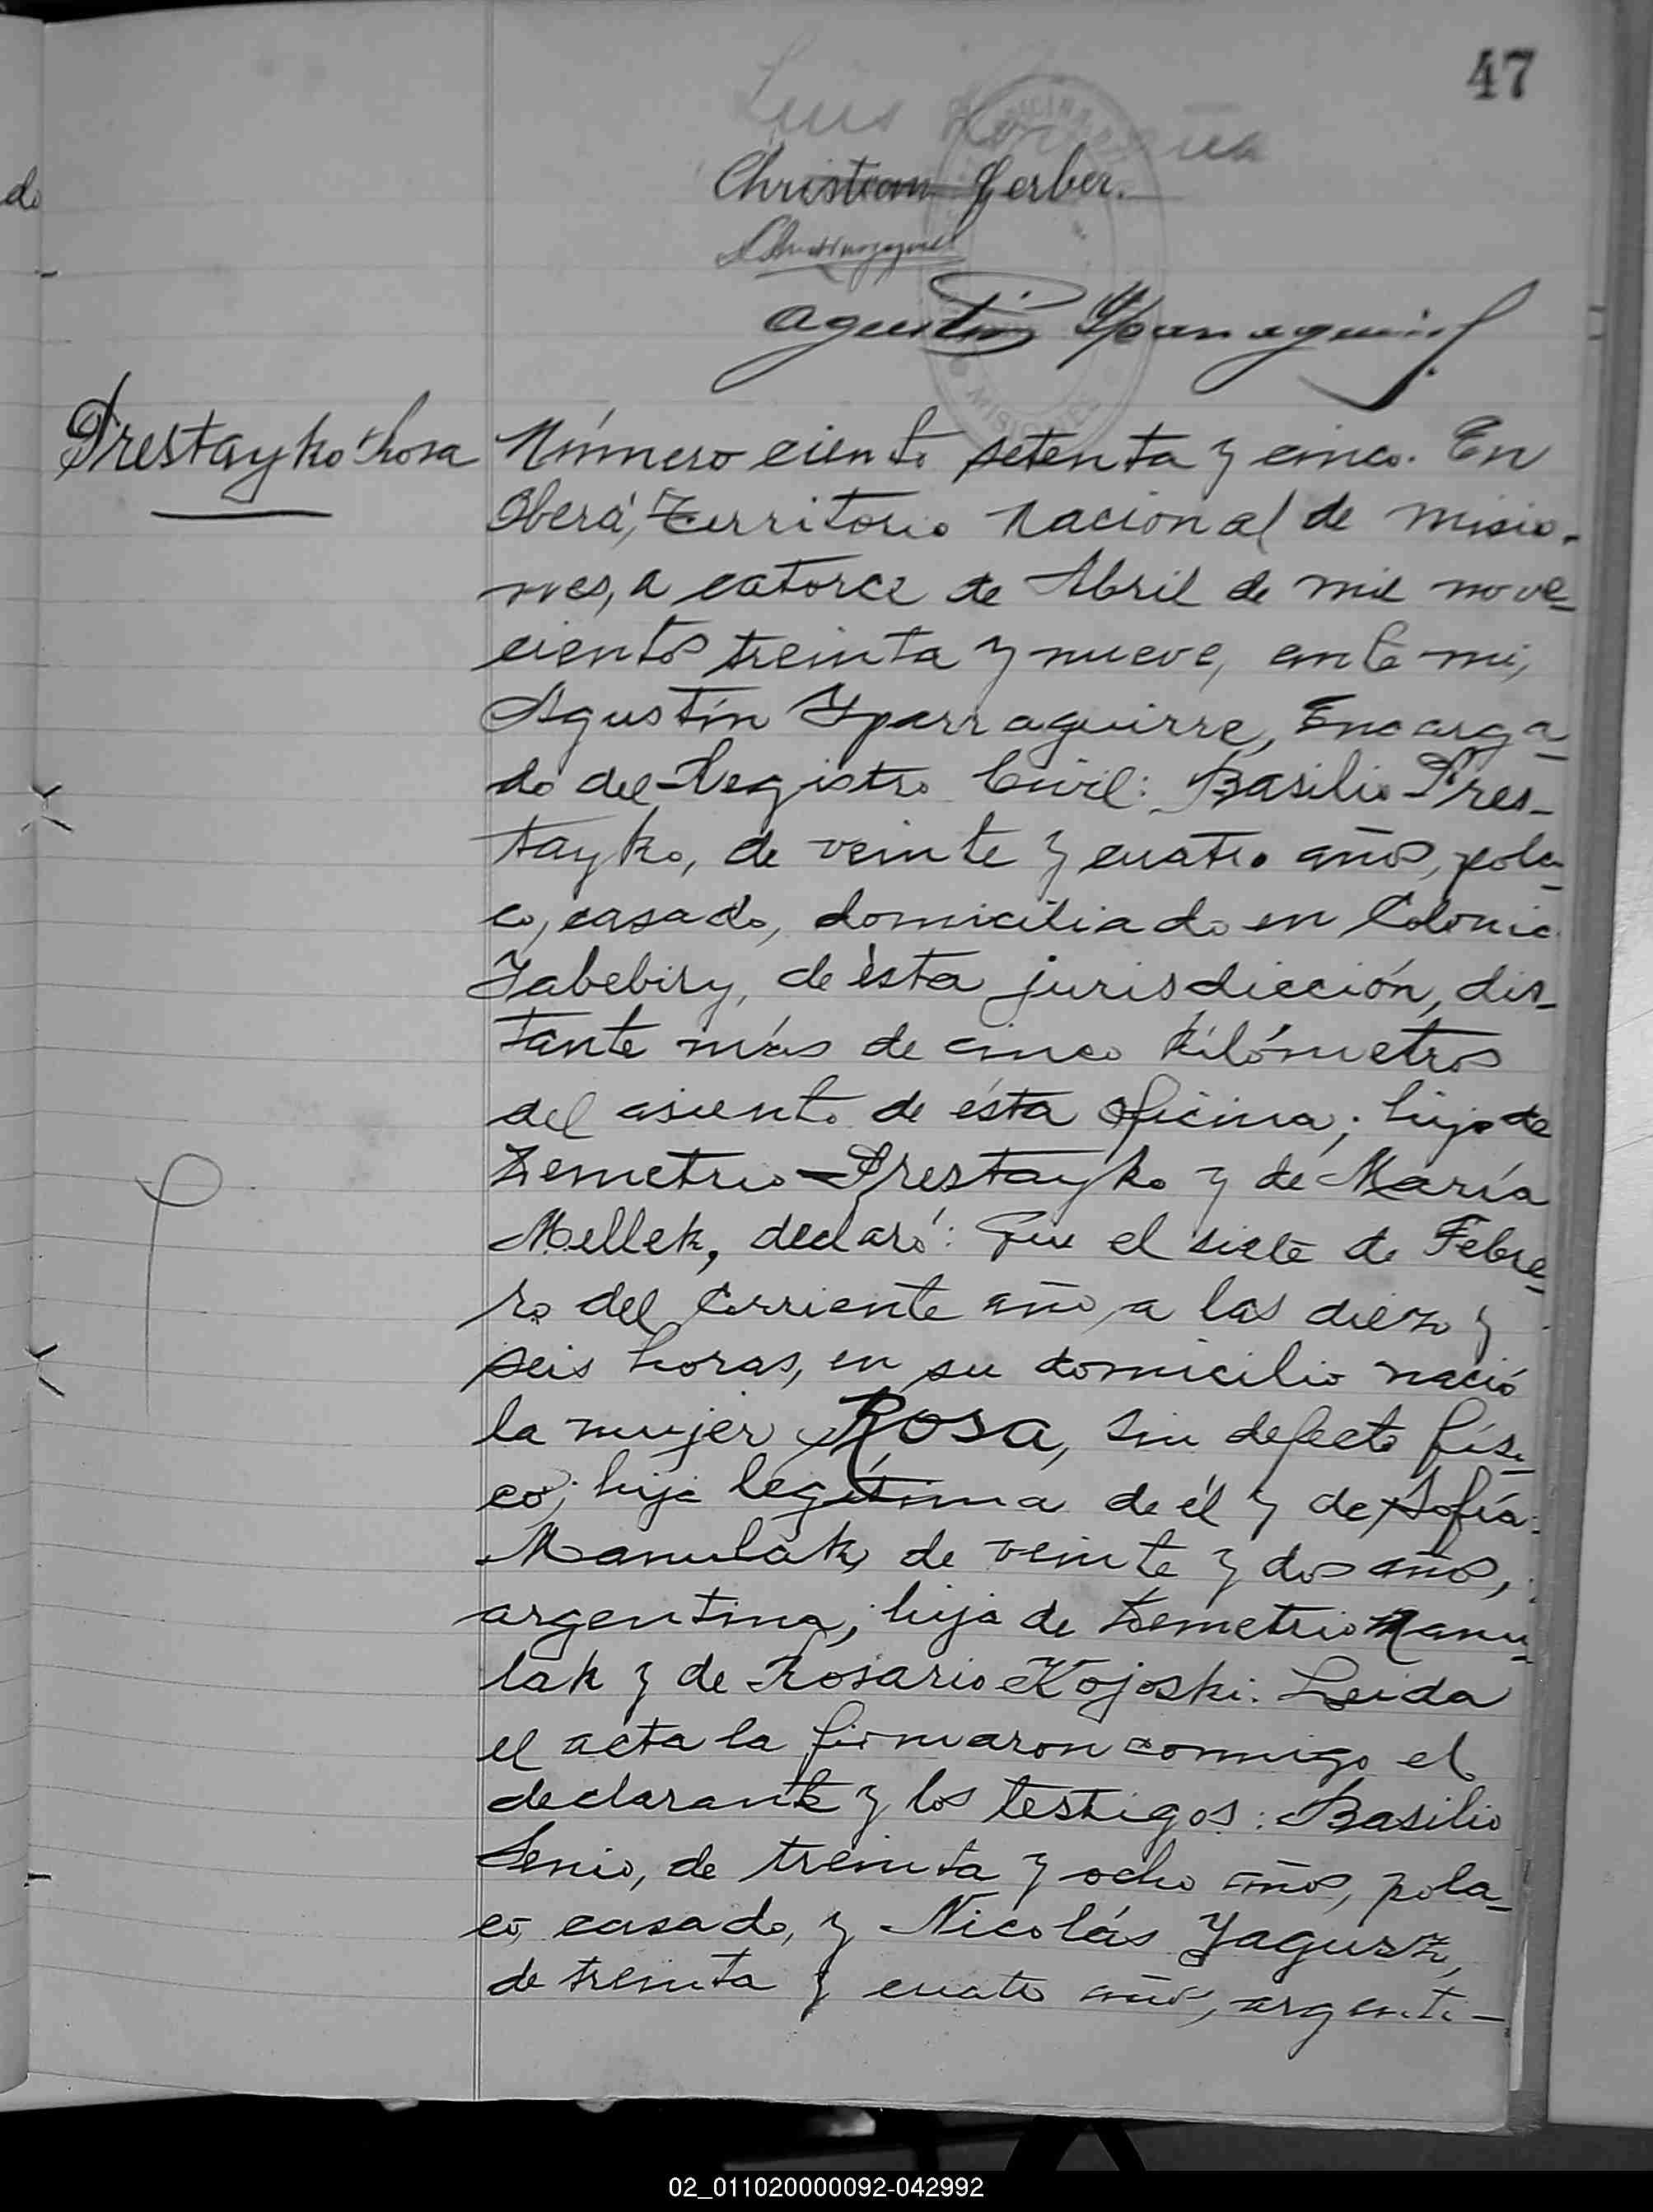 47
Luis
Christian Gerber.
Agustín Yparraguirre
do
Prestayko Rosa
Número ciento setenta y cinco. En
Oberá, Territorio Nacional de Misio-
nes, a catorce de Abril de mil nove-
cientos treinta y nueve, ante mí,
Agustín Yparraguirre, Encarga-
do del Registro Civil: Basilio Pres-
tayko, de veinte y cuatro años, pola-
co, casado, domiciliado en Colonia
Yabebiry, de ésta jurisdicción, dis-
tante más de cinco kilómetros
del asiento de ésta Oficina; hijo de
Demetrio Prestayko y de María
Mellek, declaró: Que el siete de Febre-
ro del corriente año, a las diez y
seis horas, en su domicilio nació
la mujer Rosa, sin defecto físi-
co; hija legítima de él y de Sofía
Manulak, de veinte y dos años,
argentina; hija de Demetrio Manu-
lak y de Rosario Kojoski. Leida
el acta la firmaron conmigo el
declarante y los testigos: Basilio
Senio, de treinta y ocho años, pola-
co, casado, y Nicolás Yagursz,
de treinta y cuatro años, argenti-
OFICINA
MISIONES
02_011020000092-042992